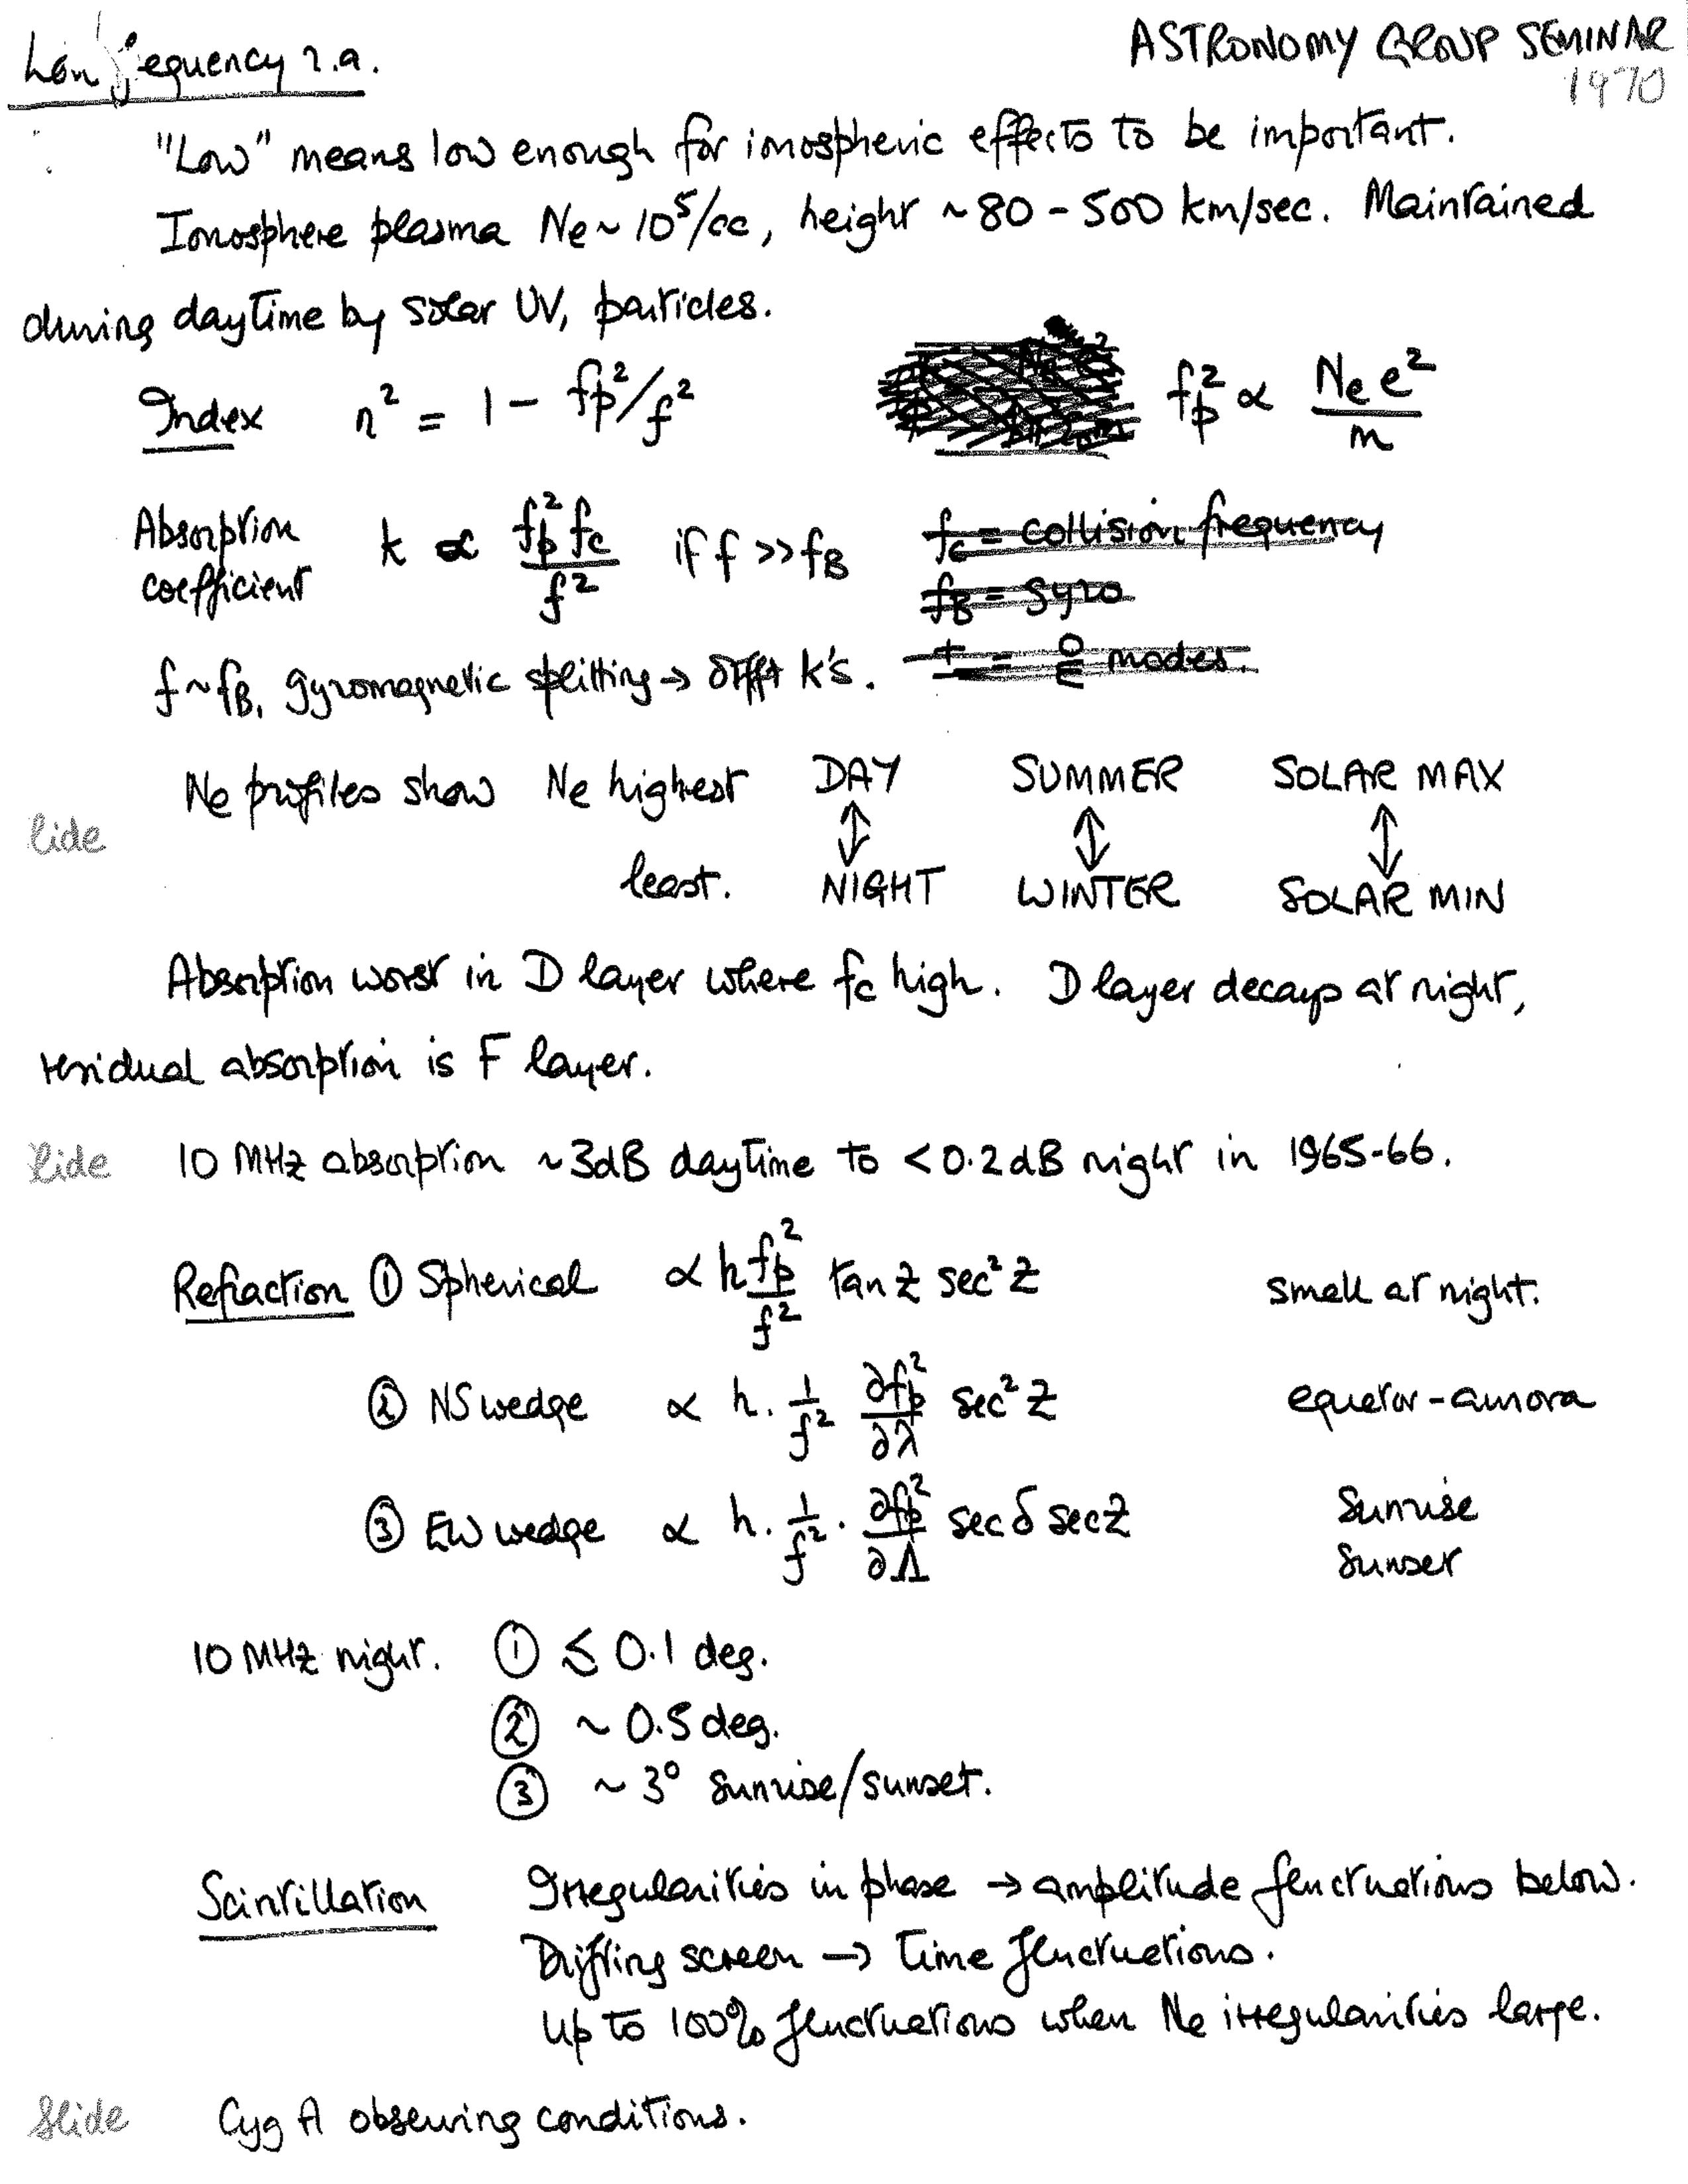 Low frequency r.a.
ASTRONOMY GROUP SEMINAR
1970
"Low" means low enough for ionospheric effects to be important.
Ionosphere plasma Ne ~ 10⁵/cc, height ~ 80 - 500 km/sec. Maintained
during daytime by solar UV, particles.
Index n² = 1 - fp²/f² fp² ∝ Ne e²/m
Absorption coefficient k ∝ fp² fc / f² if f >> fB
fc = collision frequency
fB = gyro
± = O/E modes.
f ~ fB, gyromagnetic splitting → difft k's.
Ne profiles show Ne highest DAY SUMMER SOLAR MAX
lide ↕ ↕ ↕
least. NIGHT WINTER SOLAR MIN
Absorption worst in D layer where fc high. D layer decays at night,
residual absorption is F layer.
lide 10 MHz absorption ~3dB daytime to <0.2dB night in 1965-66.
Refraction ① Spherical ∝ h fp²/f² tan z sec² z small at night.
② NS wedge ∝ h. 1/f² ∂fp²/∂λ sec² z equator - aurora
③ EW wedge ∝ h. 1/f² . ∂fp²/∂Λ sec δ sec z Sunrise
Sunset
10 MHz night. ① ≲ 0.1 deg.
② ~ 0.5 deg.
③ ~ 3° sunrise/sunset.
Scintillation Irregularities in phase → amplitude fluctuations below.
Drifting screen → time fluctuations.
Up to 100% fluctuations when Ne irregularities large.
Slide Cyg A observing conditions.